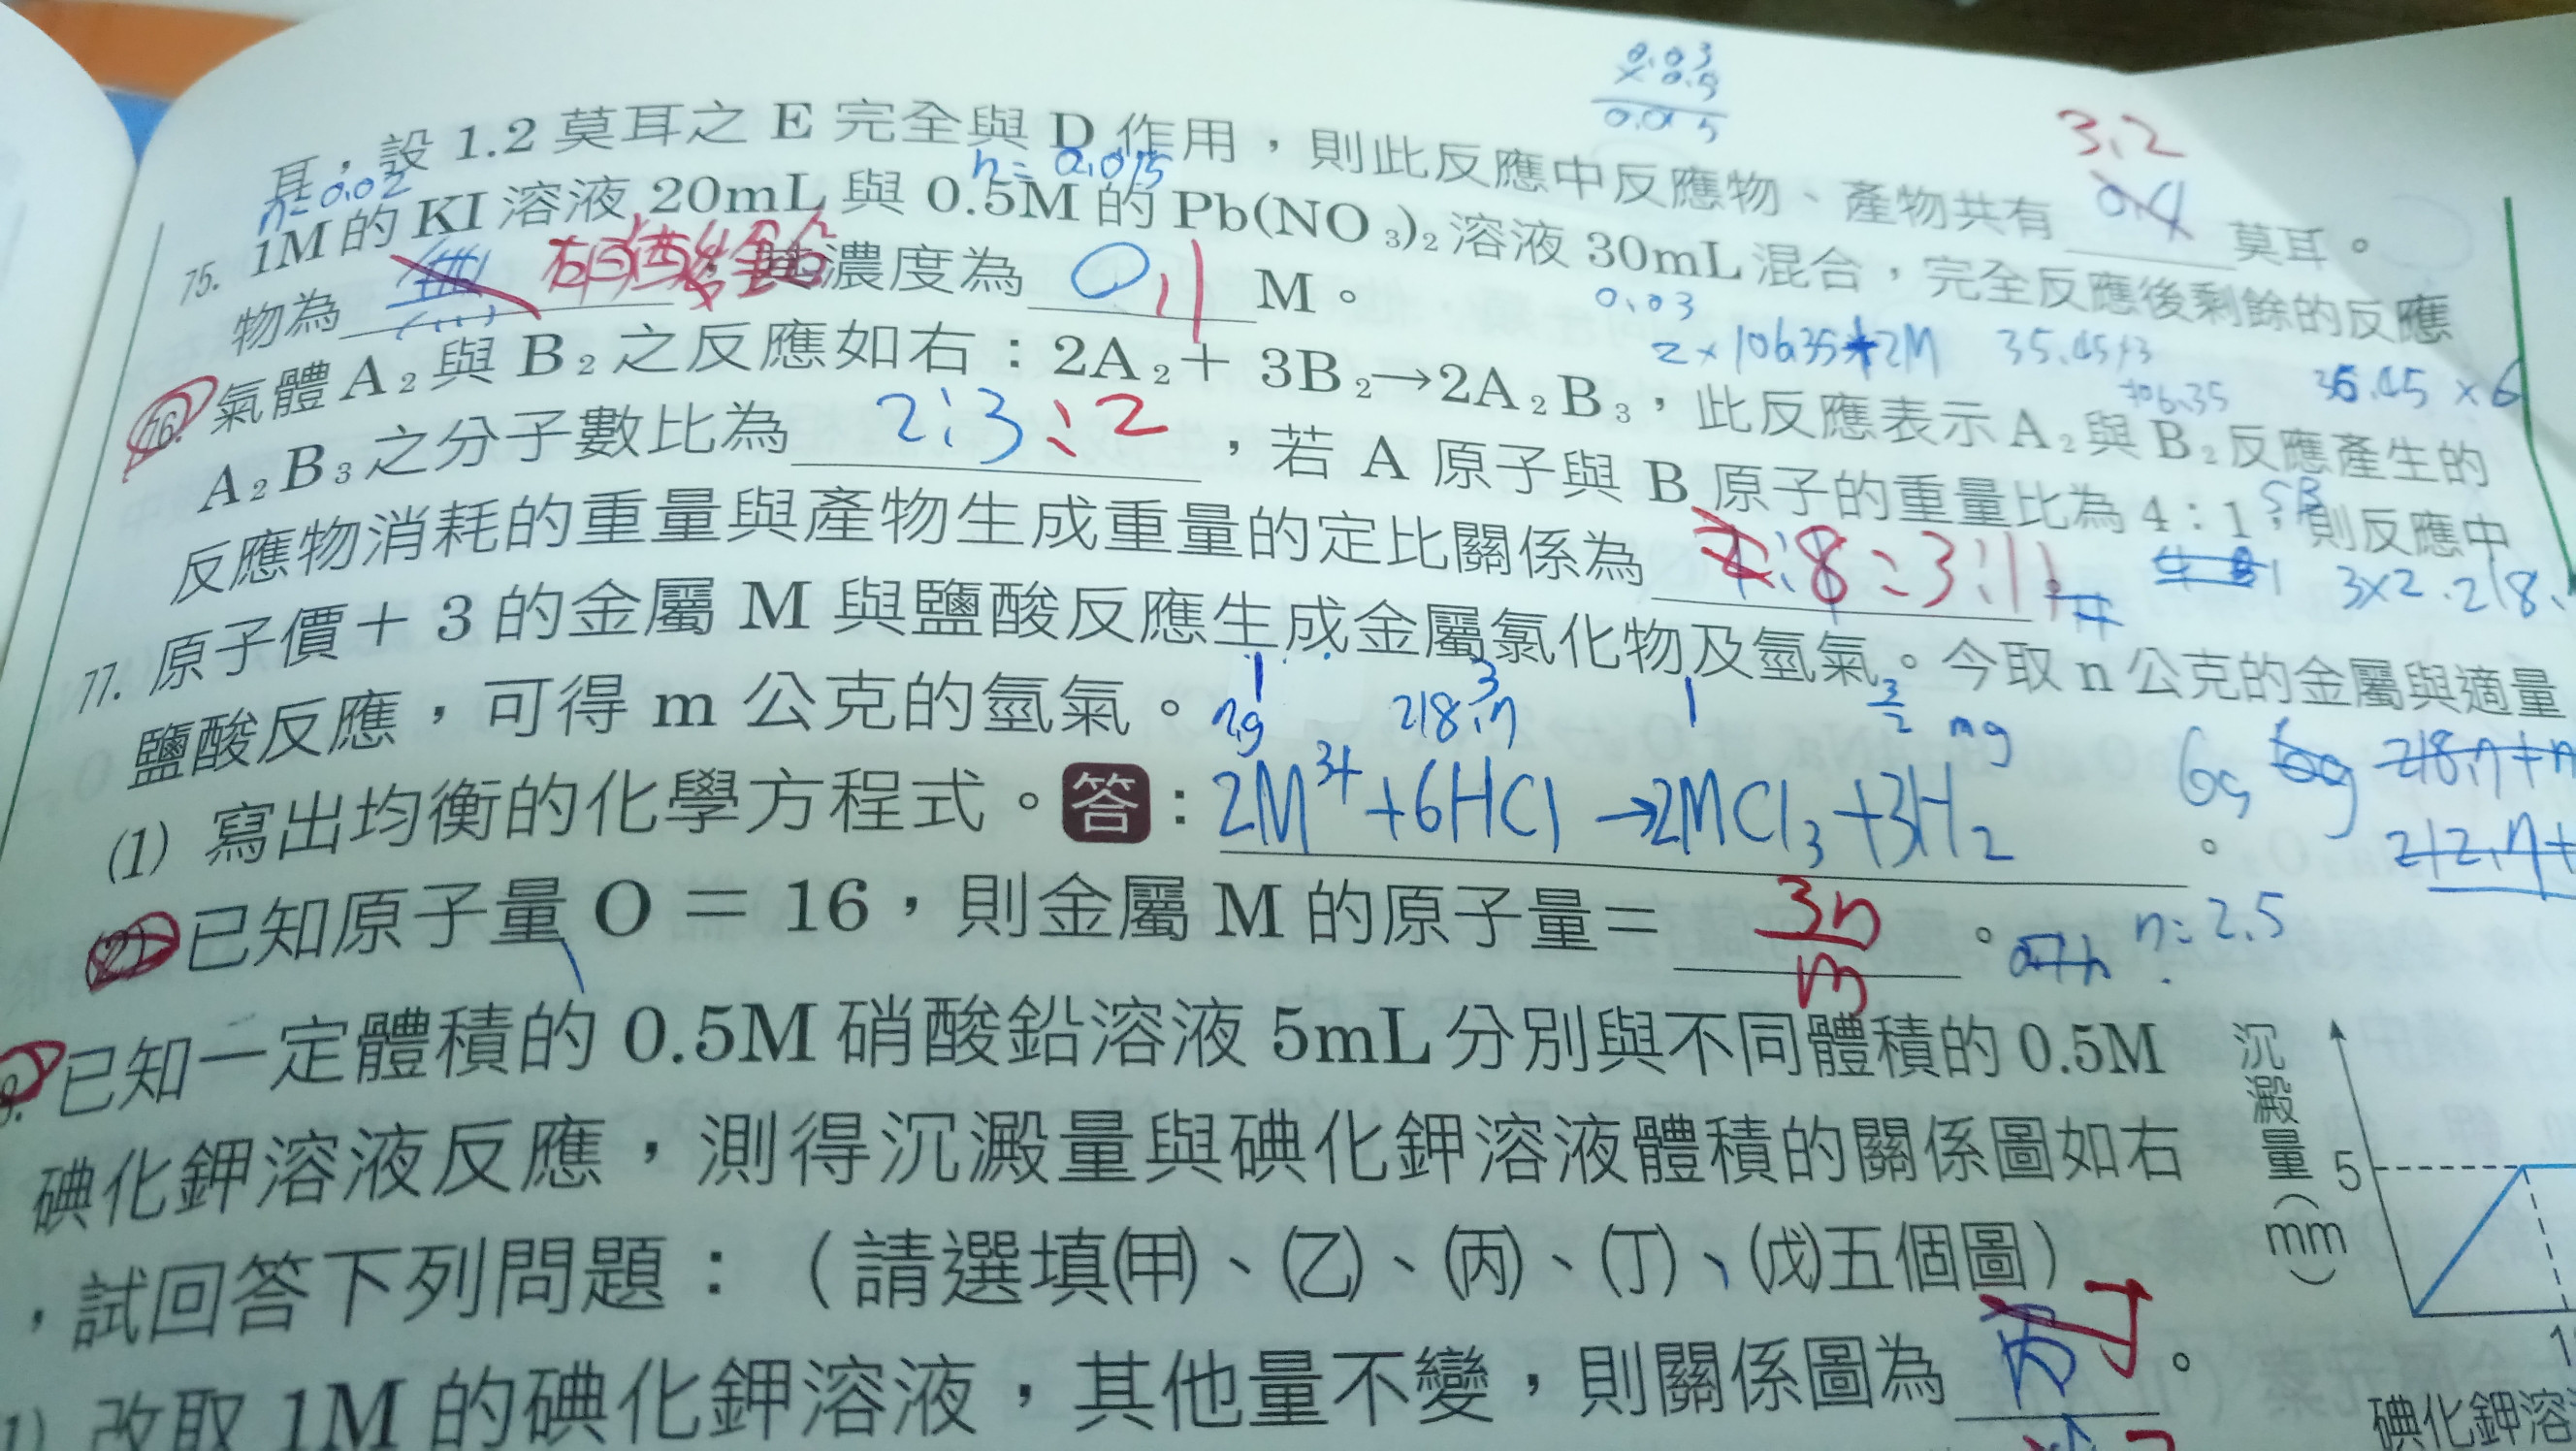 0.03
×0.5
0.015
3.2
耳，設 1.2 莫耳之 E 完全與 D 作用，則此反應中反應物、產物共有 0.4 莫耳。
n=0.02
n=0.015
75. 1M 的 KI 溶液 20mL 與 0.5M 的 Pb(NO₃)₂ 溶液 30mL 混合，完全反應後剩餘的反應
物為 無 硝酸鉛，其濃度為 0.1 M。
0.03
2×106.35+2M 35.45×3
106.35
35.45×6
76. 氣體 A₂ 與 B₂ 之反應如右：2A₂＋3B₂→2A₂B₃，此反應表示 A₂ 與 B₂ 反應產生的
A₂B₃ 之分子數比為 2:3:2，若 A 原子與 B 原子的重量比為 4：1，則反應中
反應物消耗的重量與產物生成重量的定比關係為 8:3:11。
3×2.218.
77. 原子價＋3 的金屬 M 與鹽酸反應生成金屬氯化物及氫氣。今取 n 公克的金屬與適量
鹽酸反應，可得 m 公克的氫氣。
1 3 1 3/2
ng 218.n mg
(1) 寫出均衡的化學方程式。答：2M³⁺+6HCl→2MCl₃+3H₂。
6g 6g 218.n+n
(2) 已知原子量 O＝16，則金屬 M 的原子量＝3n/m。
n=2.5
已知一定體積的 0.5M 硝酸鉛溶液 5mL 分別與不同體積的 0.5M
碘化鉀溶液反應，測得沉澱量與碘化鉀溶液體積的關係圖如右
，試回答下列問題：（請選填(甲)、(乙)、(丙)、(丁)、(戊)五個圖）
1) 改取 1M 的碘化鉀溶液，其他量不變，則關係圖為 丙 丁。
沉澱量(mm)
5
碘化鉀溶